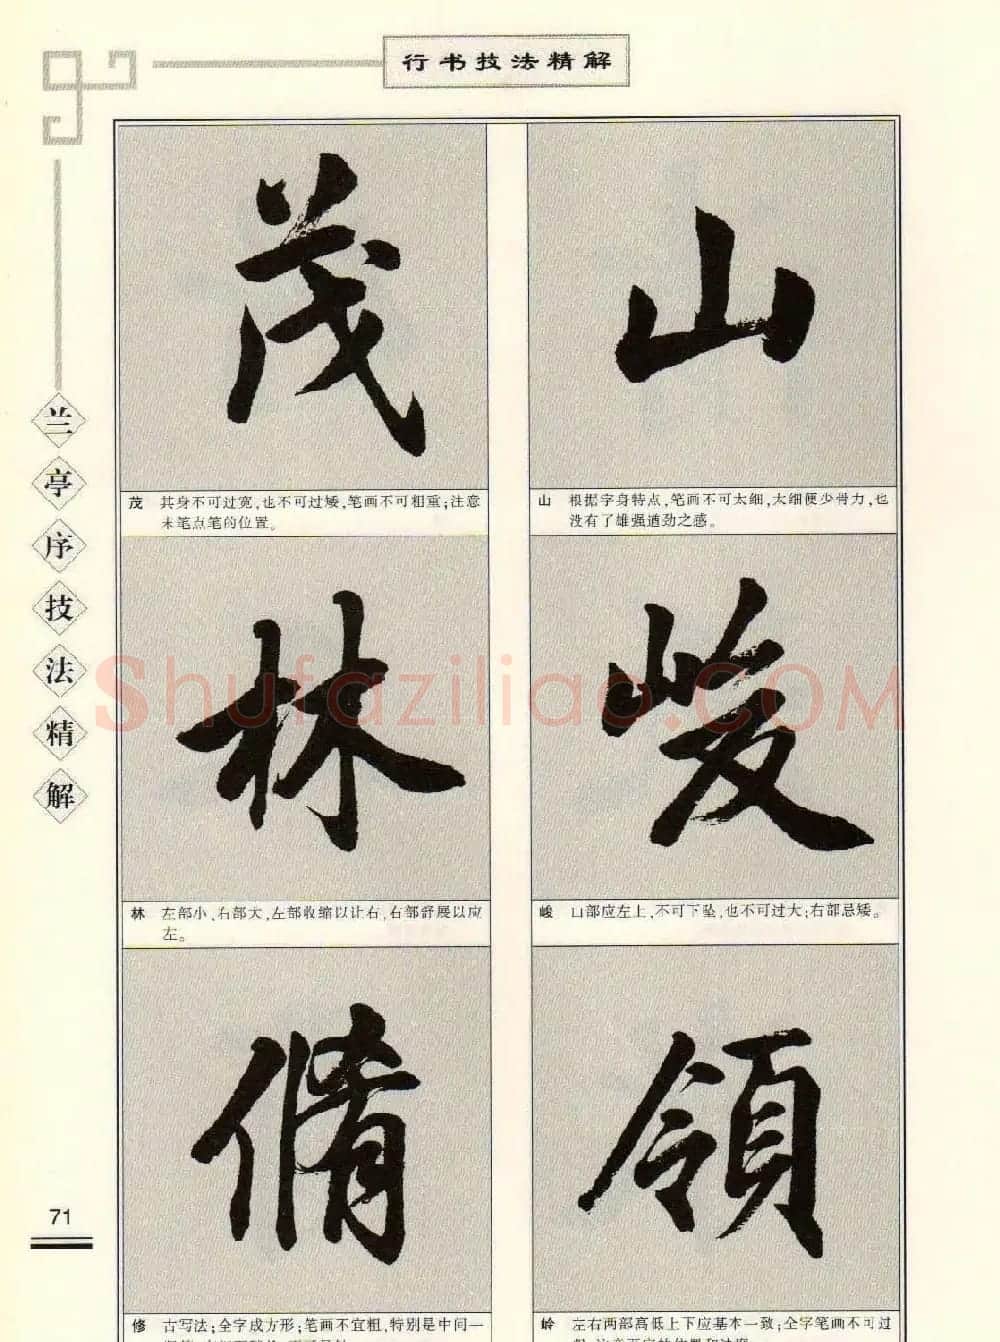 行书技法精解
兰亭序技法精解
山
山 根据字身特点,笔画不可太细,太细便少骨力,也
没有了雄强遒劲之感。
峻
峻 山部应左上,不可下坠,也不可过大;右部忌矮。
領
岭 左右两部高低上下应基本一致;全字笔画不可过
茂
茂 其身不可过宽,也不可过矮,笔画不可粗重;注意
末笔点笔的位置。
林
林 左部小,右部大,左部收缩以让右,右部舒展以应
左。
脩
修 古写法;全字成方形;笔画不宜粗,特别是中间一
71
Shufaziliao.COM